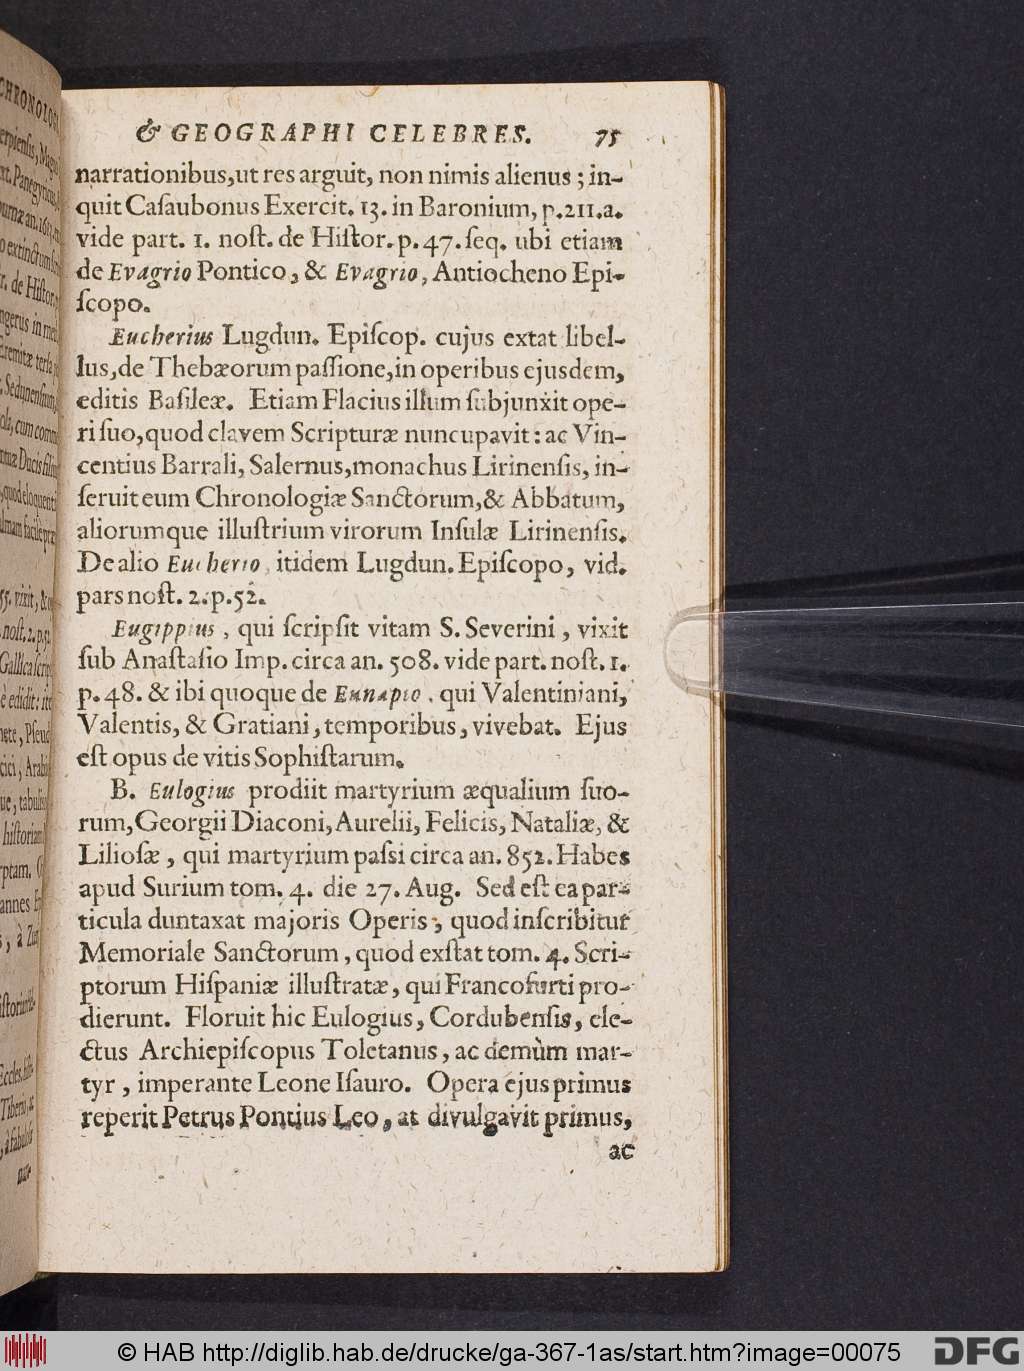 & GEOGRAPHI CELEBRES. 75
narrationibus,ut res arguit, non nimis alienus ; in-
quit Caſaubonus Exercit. 13. in Baronium, p.211.a.
vide part. 1. noſt. de Hiſtor. p. 47. ſeq. ubi etiam
de Evagrio Pontico, & Evagrio, Antiocheno Epi-
ſcopo.
Eucherius Lugdun. Epiſcop. cujus extat libel-
lus, de Thebæorum paſſione, in operibus ejusdem,
editis Baſileæ. Etiam Flacius illum ſubjunxit ope-
ri ſuo, quod clavem Scripturæ nuncupavit : ac Vin-
centius Barrali, Salernus, monachus Lirinenſis, in-
ſeruit eum Chronologiæ Sanctorum, & Abbatum,
aliorumque illuſtrium virorum Inſulæ Lirinenſis.
De alio Eucherio, itidem Lugdun. Epiſcopo, vid.
pars noſt. 2. p. 52.
Eugippius, qui ſcripſit vitam S. Severini, vixit
ſub Anaſtaſio Imp. circa an. 508. vide part. noſt. 1.
p. 48. & ibi quoque de Eunapio, qui Valentiniani,
Valentis, & Gratiani, temporibus, vivebat. Ejus
eſt opus de vitis Sophiſtarum.
B. Eulogius prodiit martyrium æqualium ſuo-
rum, Georgii Diaconi, Aurelii, Felicis, Nataliæ, &
Lilioſæ, qui martyrium paſsi circa an. 852. Habes
apud Surium tom. 4. die 27. Aug. Sed eſt ea par-
ticula duntaxat majoris Operis, quod inſcribitur
Memoriale Sanctorum, quod exſtat tom. 4. Scri-
ptorum Hiſpaniæ illuſtratæ, qui Francofurti pro-
dierunt. Floruit hic Eulogius, Cordubenſis, ele-
ctus Archiepiſcopus Toletanus, ac demùm mar-
tyr, imperante Leone Iſauro. Opera ejus primus
reperit Petrus Pontius Leo, at divulgavit primus,
ac
© HAB http://diglib.hab.de/drucke/ga-367-1as/start.htm?image=00075
DFG